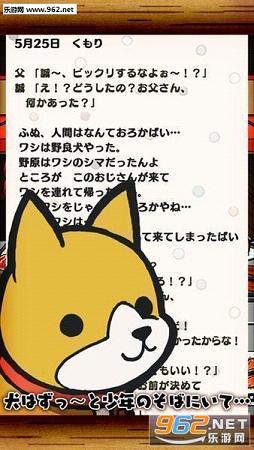 乐游网
www.962.net
5月25日 くもり
父 「誠～、ビックリするなよぉ～！？」
誠 「え！？どうしたの？お父さん、
何かあった？」
ふぬ、人間はなんておろかばい…
ワシは野良犬やった。
野原はワシのシマだったんよ
ところが このおじさんが来て
ワシを連れて帰っ
ワシをじゃ ろかやね…
ワシは
て来てしまったばい
る！？」
だ！
かったからな！
もいい！？」
お前が決めて
犬はずっ～と少年のそばにいて…
962.NET
乐游网